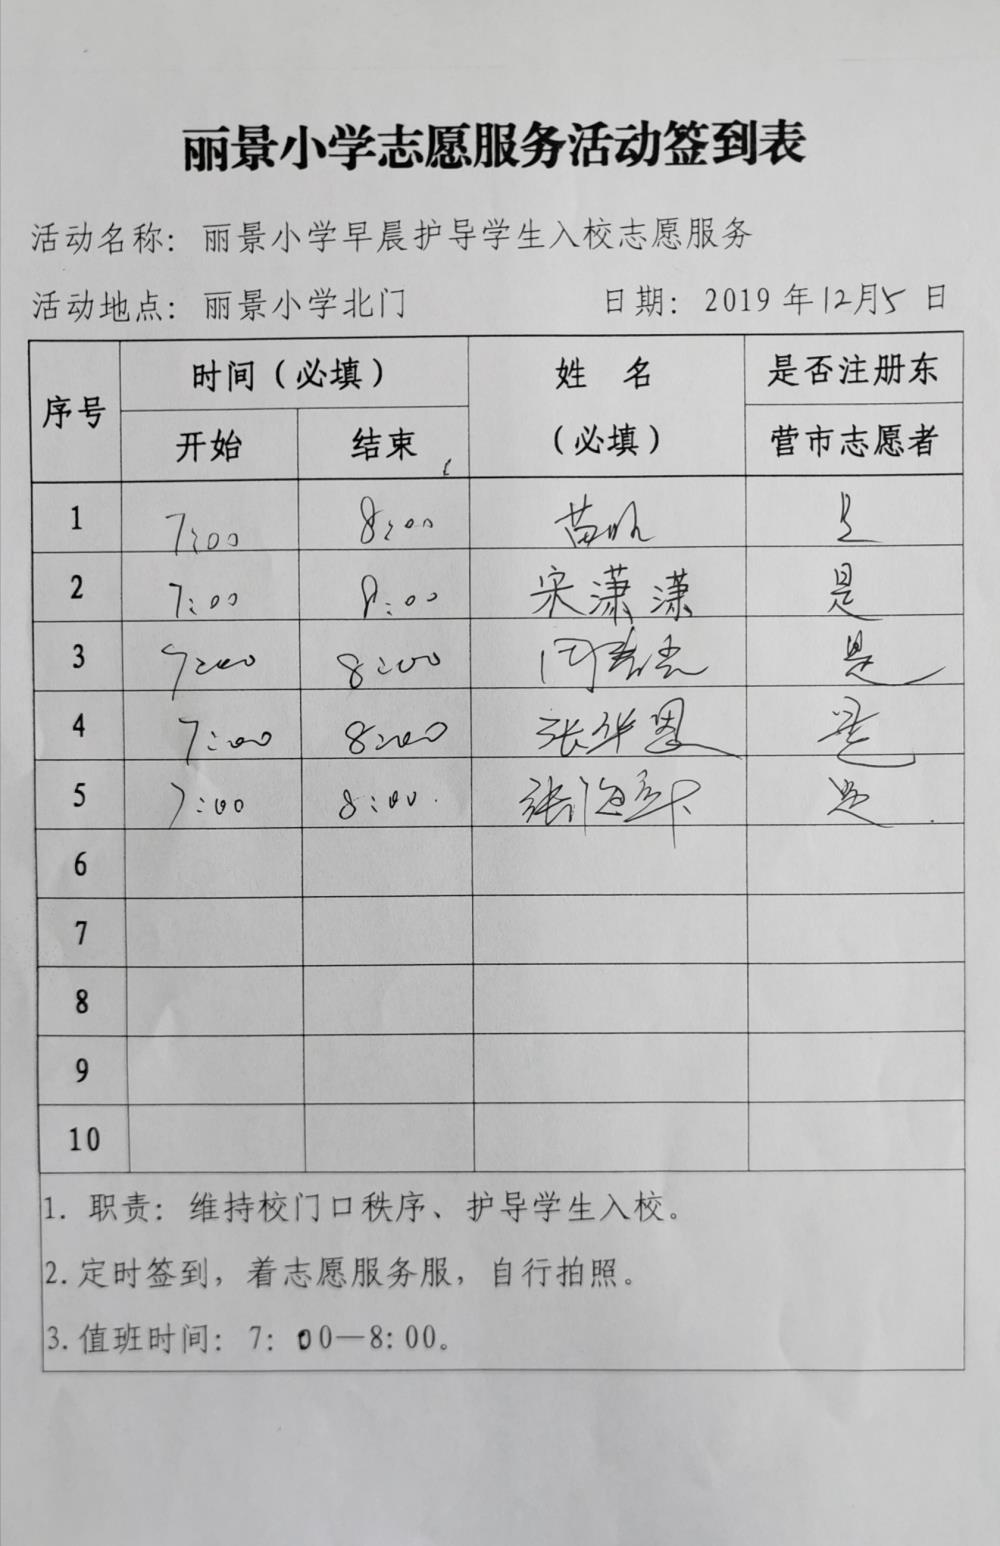 丽景小学志愿服务活动签到表
活动名称：丽景小学早晨护导学生入校志愿服务
活动地点：丽景小学北门 日期：2019年12月5日
序号 时间（必填） 姓 名 是否注册东
开始 结束 （必填） 营市志愿者
1 7:00 8:00 苗
2 7:00 8:00 宋潇潇 是
3 7:00 8:00 是
4 7:00 8:00 张华恩 是
5 7:00 8:00 张 是
6
7
8
9
10
1. 职责：维持校门口秩序、护导学生入校。
2.定时签到，着志愿服务服，自行拍照。
3.值班时间：7：00—8:00。